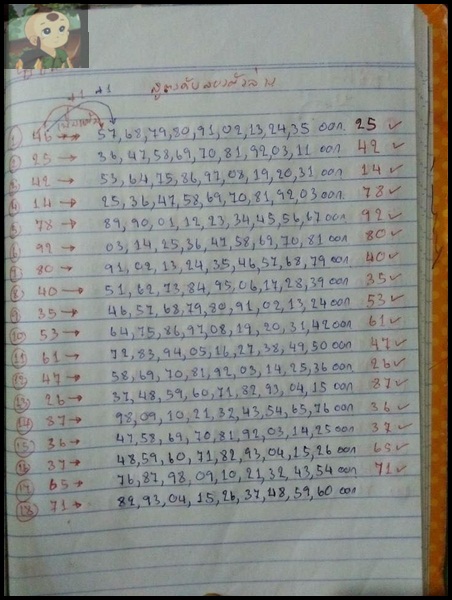 สูตรดับสองตัวล่าง
+1 +1
1 46 → 57,68,79,80,91,02,13,24,35 ออก 25 ✓
2 25 → 36,47,58,69,70,81,92,03,11 ออก 42 ✓
3 42 → 53,64,75,86,97,08,19,20,31 ออก 14 ✓
4 14 → 25,36,47,58,69,70,81,92,03 ออก 78 ✓
5 78 → 89,90,01,12,23,34,45,56,67 ออก 92 ✓
6 92 → 03,14,25,36,47,58,69,70,81 ออก 80 ✓
7 80 → 91,02,13,24,35,46,57,68,79 ออก 40 ✓
8 40 → 51,62,73,84,95,06,17,28,39 ออก 35 ✓
9 35 → 46,57,68,79,80,91,02,13,24 ออก 53 ✓
10 53 → 64,75,86,97,08,19,20,31,42 ออก 61 ✓
11 61 → 72,83,94,05,16,27,38,49,50 ออก 47 ✓
12 47 → 58,69,70,81,92,03,14,25,36 ออก 26 ✓
13 26 → 37,48,59,60,71,82,93,04,15 ออก 87 ✓
14 87 → 98,09,10,21,32,43,54,65,76 ออก 36 ✓
15 36 → 47,58,69,70,81,92,03,14,25 ออก 37 ✓
16 37 → 48,59,60,71,82,93,04,15,26 ออก 65 ✓
17 65 → 76,87,98,09,10,21,32,43,54 ออก 71 ✓
18 71 → 82,93,04,15,26,37,48,59,60 ออก